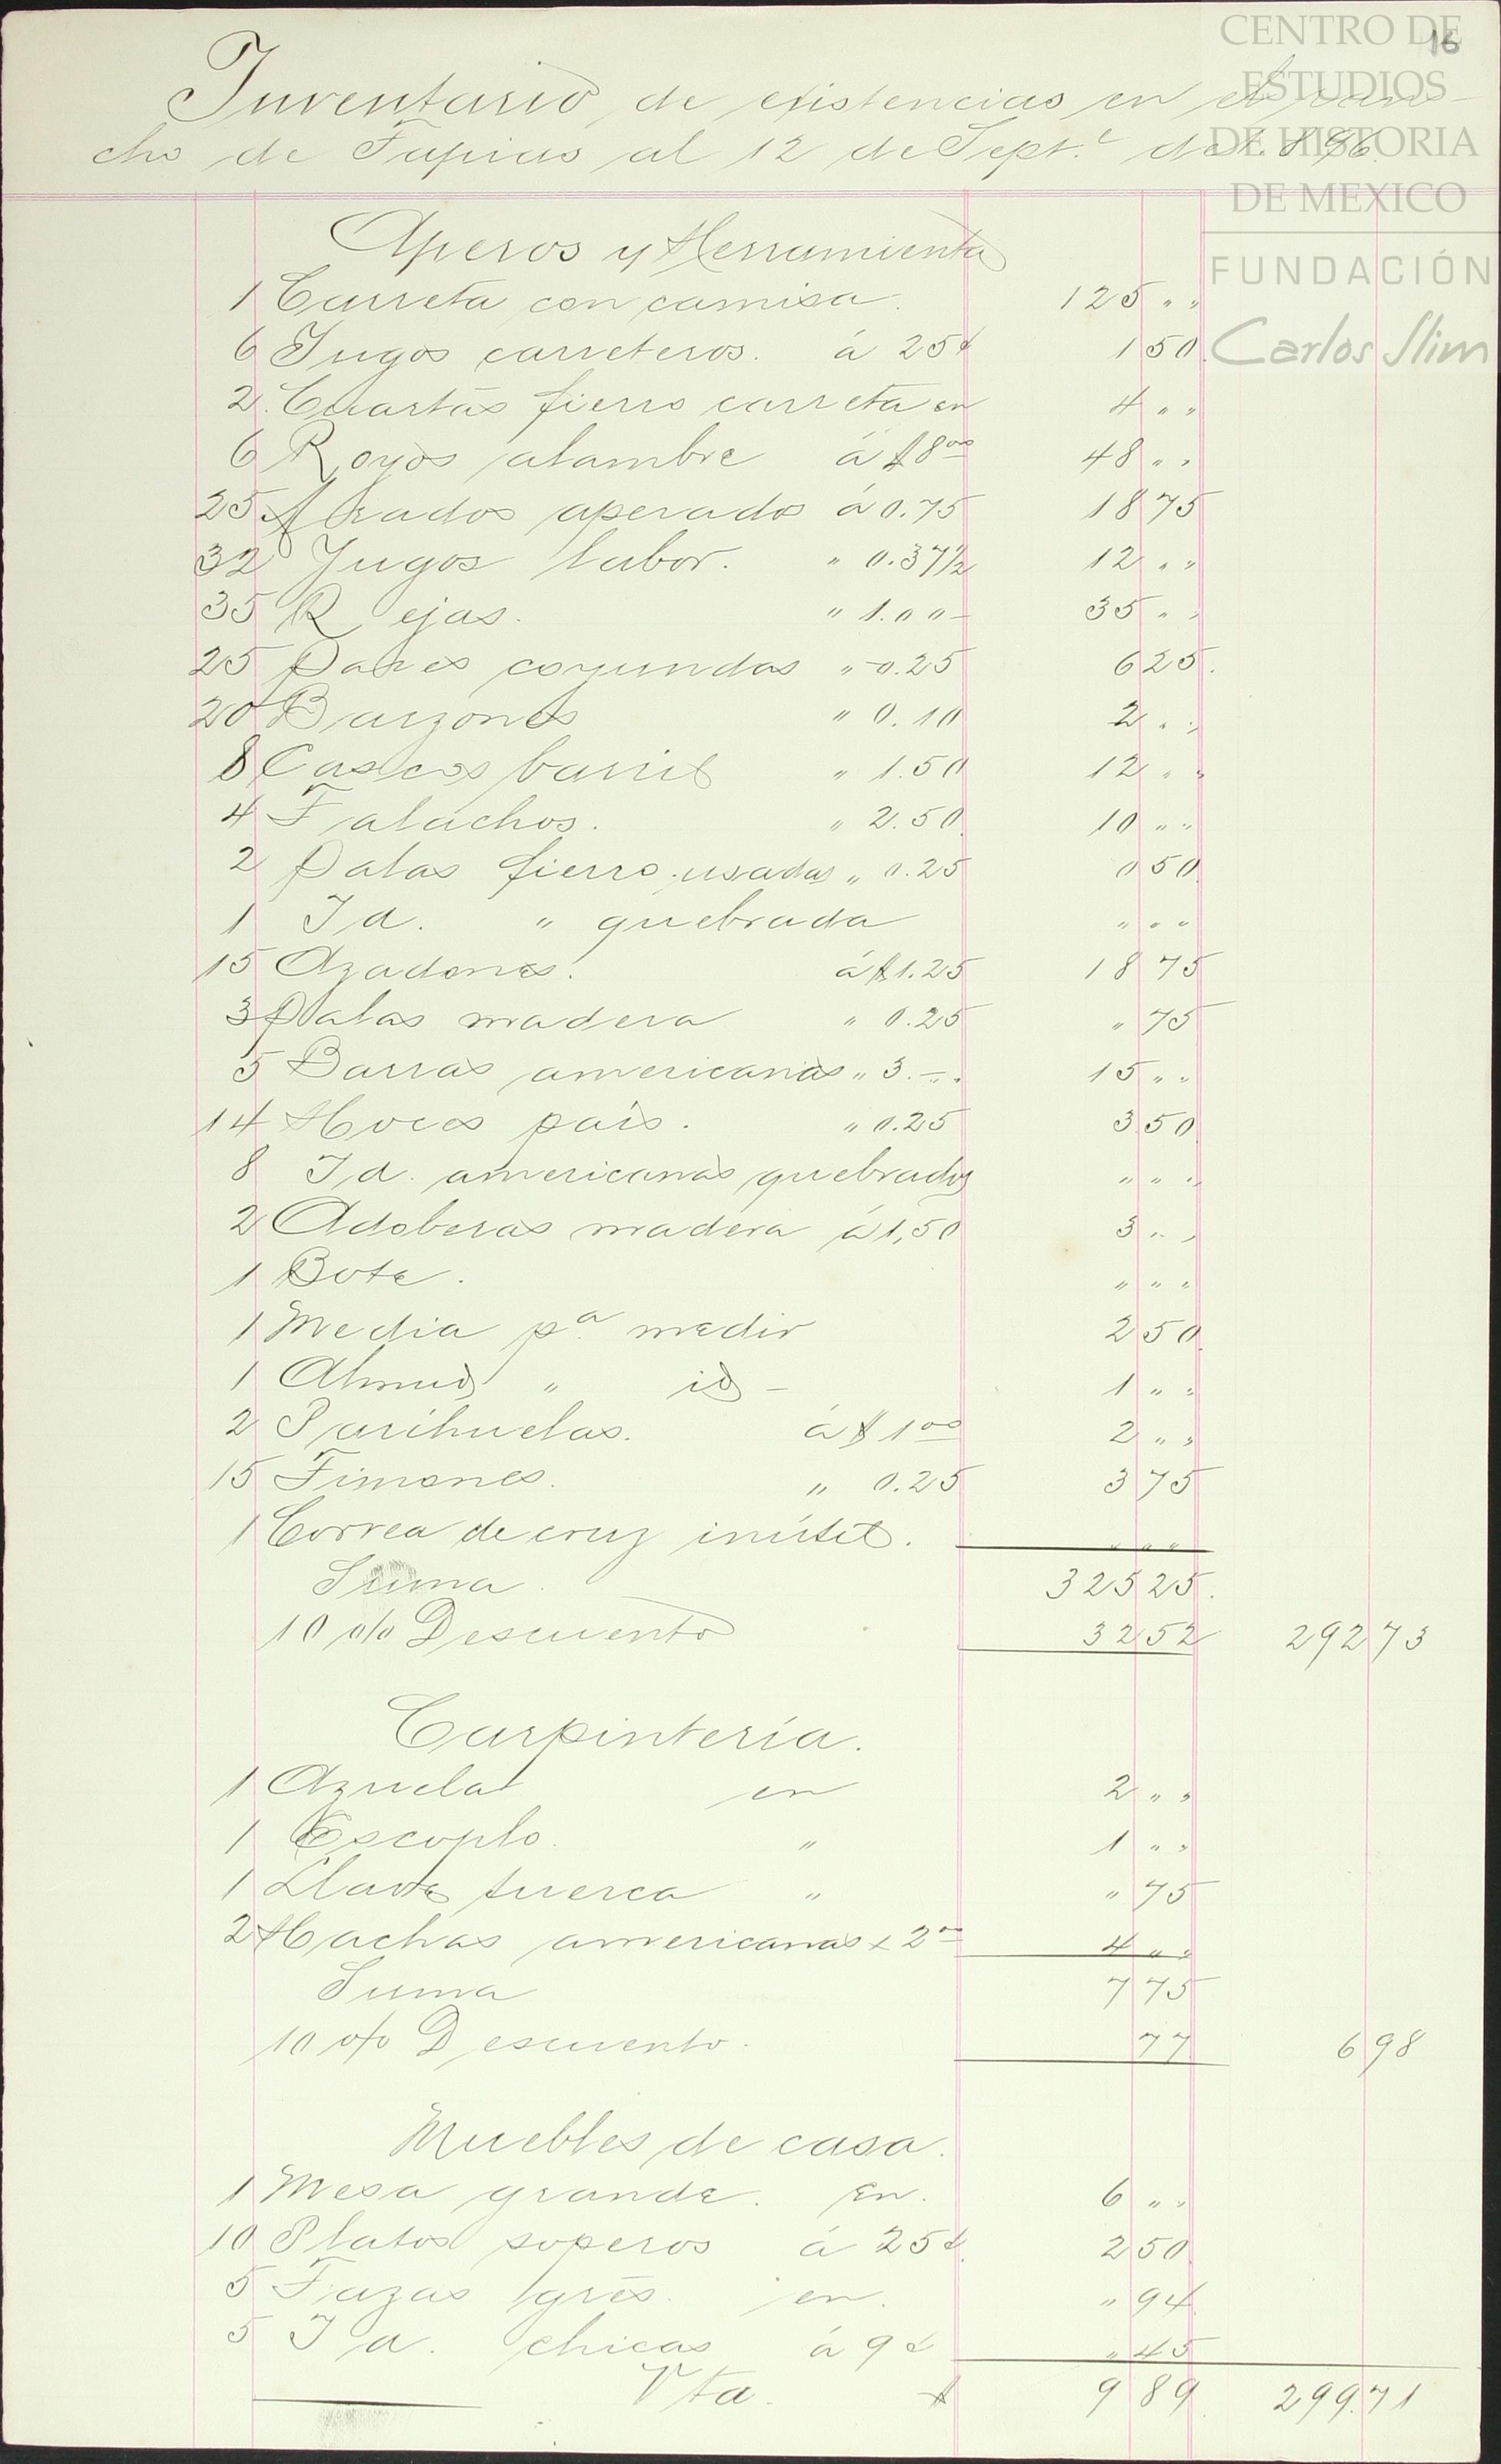 16
CENTRO DE
ESTUDIOS
DE HISTORIA
DE MEXICO
FUNDACIÓN
Carlos Slim
Inventario de existencias en el ran-
cho de Tapias al 12 de Sept.e de 1896.
Aperos y Herramienta
1 Carreta con camisa. 125 " "
6 Yugos carreteros. á 25¢ 1 50.
2. Cuartas fierro carreta en 4 " "
6 Royos alambre á $8.00 48 " "
25 Arados aperados á 0.75 18 75
32 Yugos labor. " 0.37½ 12 " "
35 Rejas. " 1.00 - 35 " "
25 Pares coyundas " 0.25 6 25.
20 Barzones " 0.10 2 " "
8 Cascos barril " 1.50 12 " "
4 Talachos. " 2.50 10 " "
2 Palas fierro usadas " 0.25 0 50
1 Id. " quebrada " " "
15 Azadones. á $1.25 18 75
3 Palas madera " 0.25 " 75
5 Barras americanas " 3.-. 15 " "
14 Hoces pais. " 0.25 3 50
8 Id. americanas quebradas " " "
2 Adoberas madera á 1,50 3 " "
1 Bote. " " "
1 Media pa. medir 2 50.
1 Almud " id - 1 " "
2 Parihuelas. á $1.00 2 " "
15 Timones. " 0.25 3 75
1 Correa de cruz inútil. " " "
Suma. 325 25.
10 o/o Descuento 32 52 292 73
Carpintería.
1 Azuela en 2 " "
1 Escoplo. " 1 " "
1 Llave tuerca " " 75
2 Hachas americanas x 2.00 4 " "
Suma 7 75
10 o/o Descuento. 77 6 98
Muebles de casa.
1 Mesa grande. En. 6 " "
10 Platos soperos á 25¢. 2 50
5 Tazas grés. en. " 94
5 Id. chicas á 9¢ " 45
Vta. $ 9 89 299.71